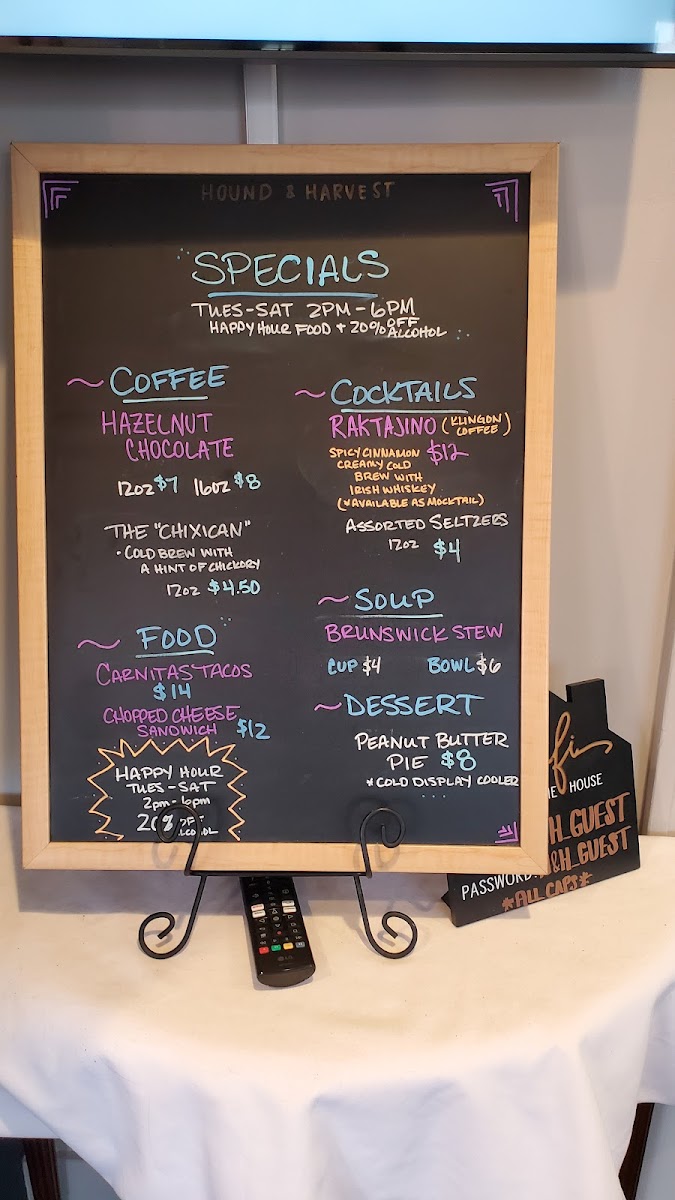 HOUND & HARVEST
SPECIALS
TUES-SAT 2PM-6PM
HAPPY HOUR FOOD + 20% OFF ALCOHOL
~ COFFEE
HAZELNUT
CHOCOLATE
12oz $7 16oz $8
THE "CHIXICAN"
• COLD BREW WITH
A HINT OF CHICKORY
12oz $4.50
~ FOOD
CARNITAS TACOS
$14
CHOPPED CHEESE
SANDWICH $12
HAPPY HOUR
TUES-SAT
2pm-6pm
~ COCKTAILS
RAKTAJINO (KLINGON COFFEE)
SPICY CINNAMON $12
CREAMY COLD
BREW WITH
IRISH WHISKEY
(*AVAILABLE AS MOCKTAIL)
ASSORTED SELTZERS
12oz $4
~ SOUP
BRUNSWICK STEW
CUP $4 BOWL $6
~ DESSERT
PEANUT BUTTER
PIE $8
*COLD DISPLAY COOLER
HOUSE
H_GUEST
PASSWORD: &H_GUEST
*ALL CAPS*
LG